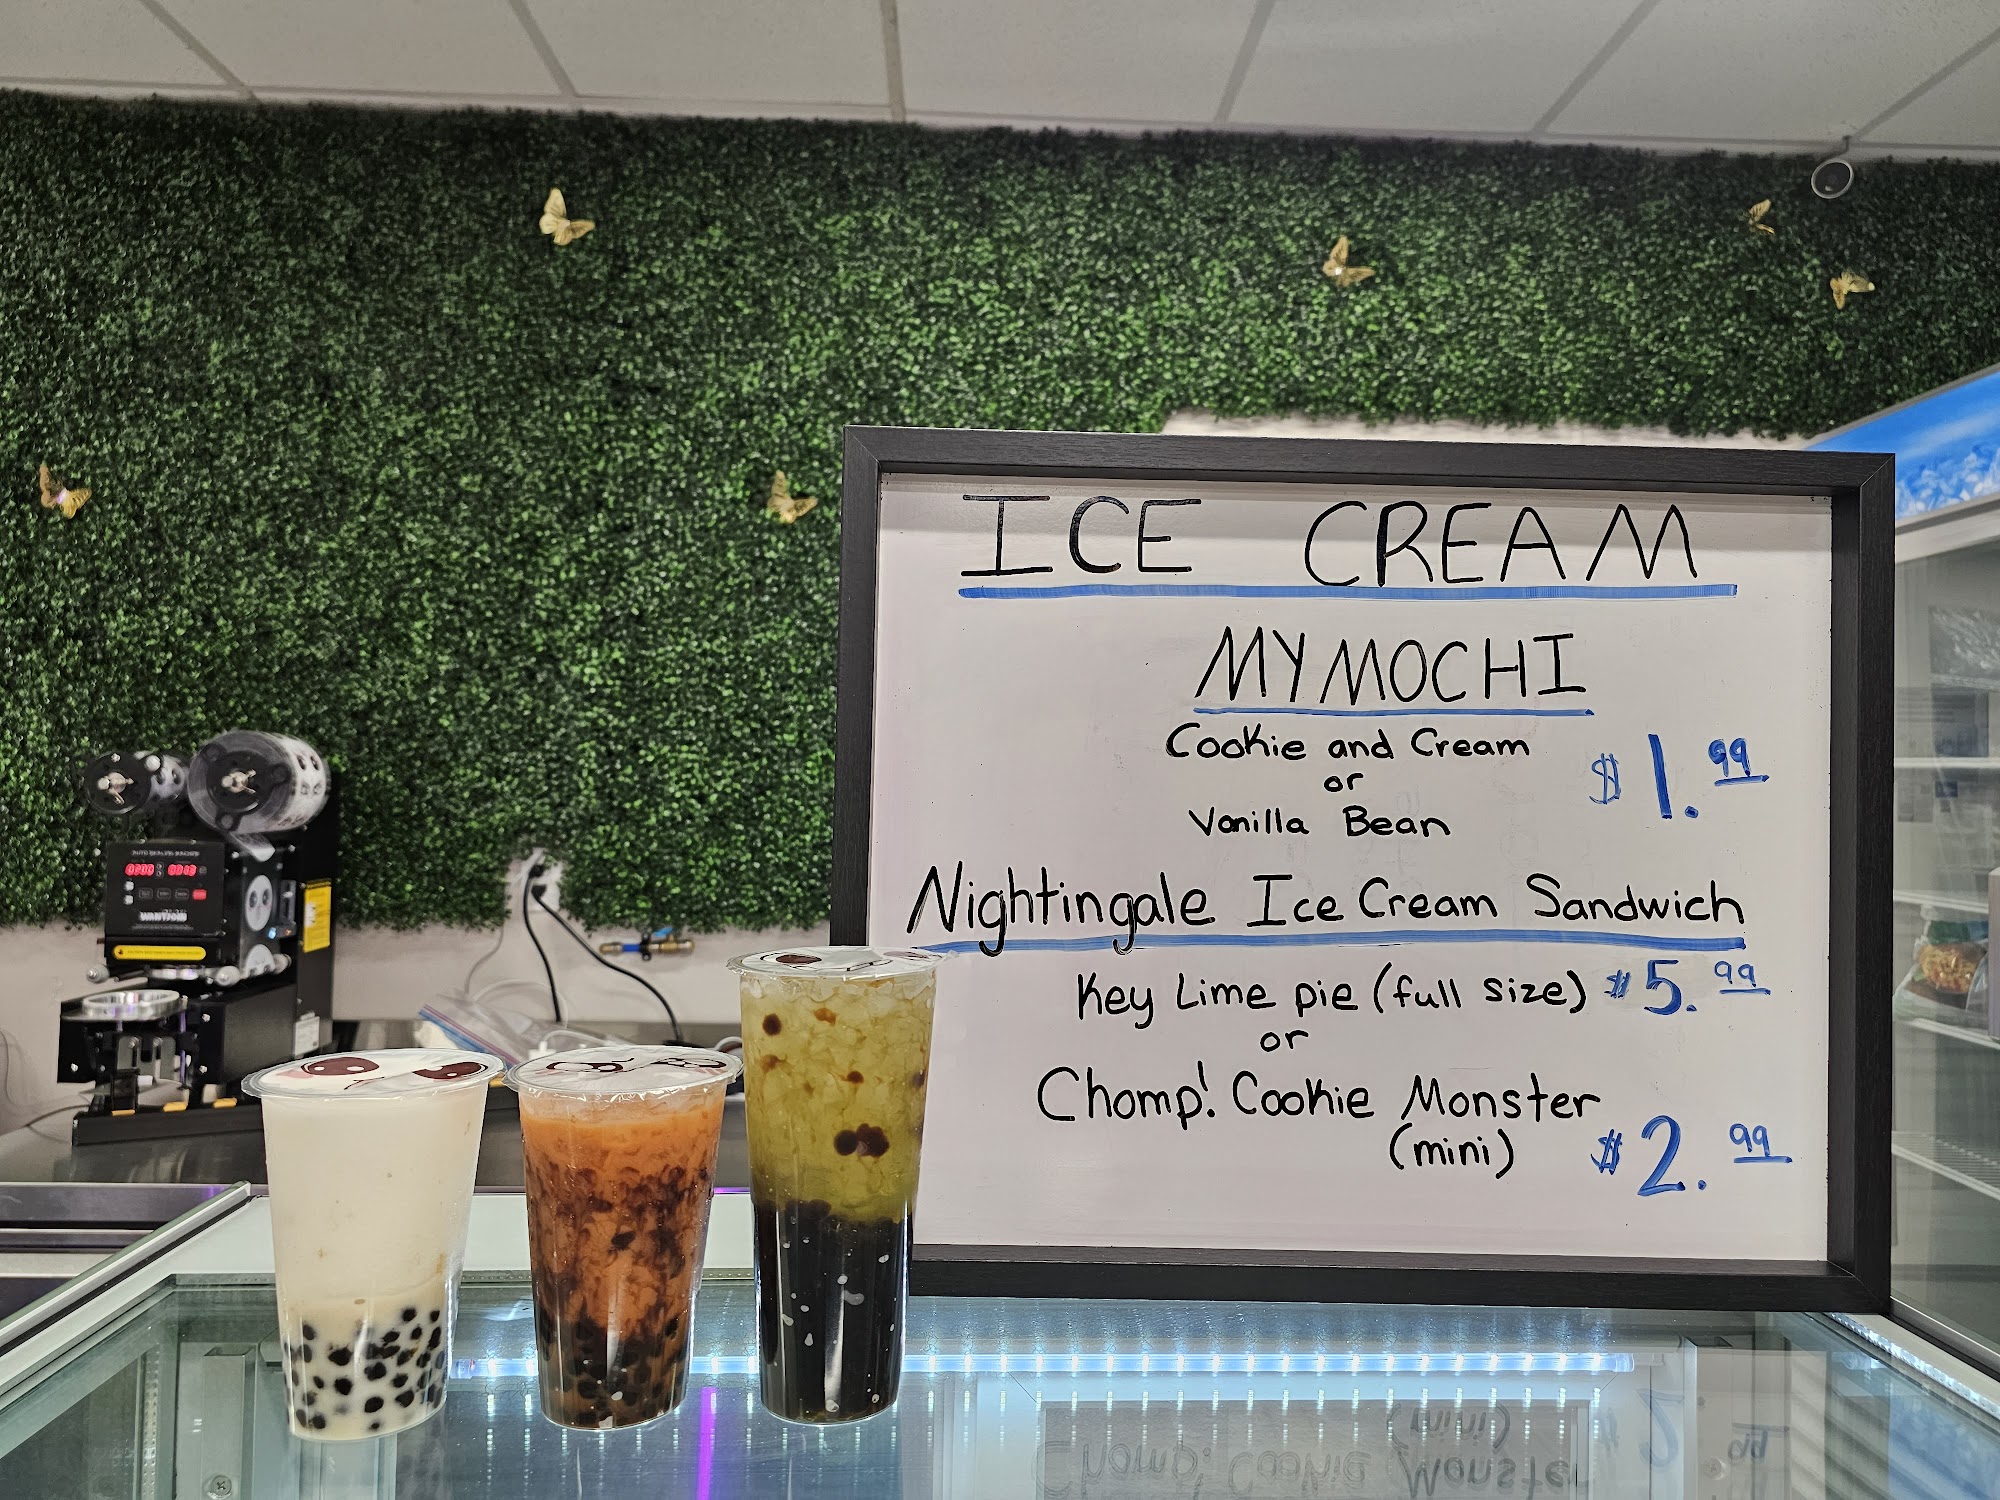 ICE CREAM
MYMOCHI
Cookie and Cream
or
Vanilla Bean
$1.99
Nightingale Ice Cream Sandwich
Key Lime pie (full size) $5.99
or
Chomp! Cookie Monster
(mini) $2.99